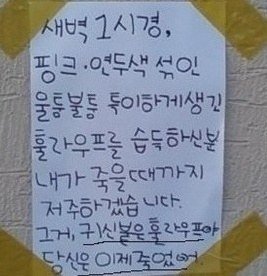 새벽 1시경,
핑크·연두색 섞인
울퉁불퉁 특이하게생긴
훌라우프를 습득하신분
내가 죽을때까지
저주하겠습니다.
그거, 귀신붙은훌라우프야
당신은 이제죽었어.